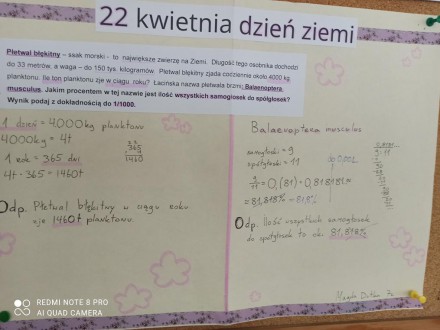 22 kwietnia dzień ziemi
Płetwal błękitny – ssak morski - to największe zwierzę na Ziemi. Długość tego osobnika dochodzi
do 33 metrów, a waga – do 150 tys. kilogramów. Płetwal błękitny zjada codziennie około 4000 kg
planktonu. Ile ton planktonu zje w ciągu roku? Łacińska nazwa płetwala brzmi: Balaenoptera
musculus. Jakim procentem w tej nazwie jest ilość wszystkich samogłosek do spółgłosek?
Wynik podaj z dokładnością do 1/1000.
1 dzień = 4000kg planktonu
4000kg = 4t
1 rok = 365 dni
4t · 365 = 1460t
365
4
1460
Odp. Płetwal błękitny w ciągu roku
zje 1460t planktonu.
Balaenoptera musculus
samogłoski = 9
spółgłoski = 11
do 0,001
9/11 = 0,(81) = 0,818181...
= 81,818%
Odp. Ilość wszystkich samogłosek
do spółgłosek to ok. 81,818%
Magda
REDMI NOTE 8 PRO
AI QUAD CAMERA